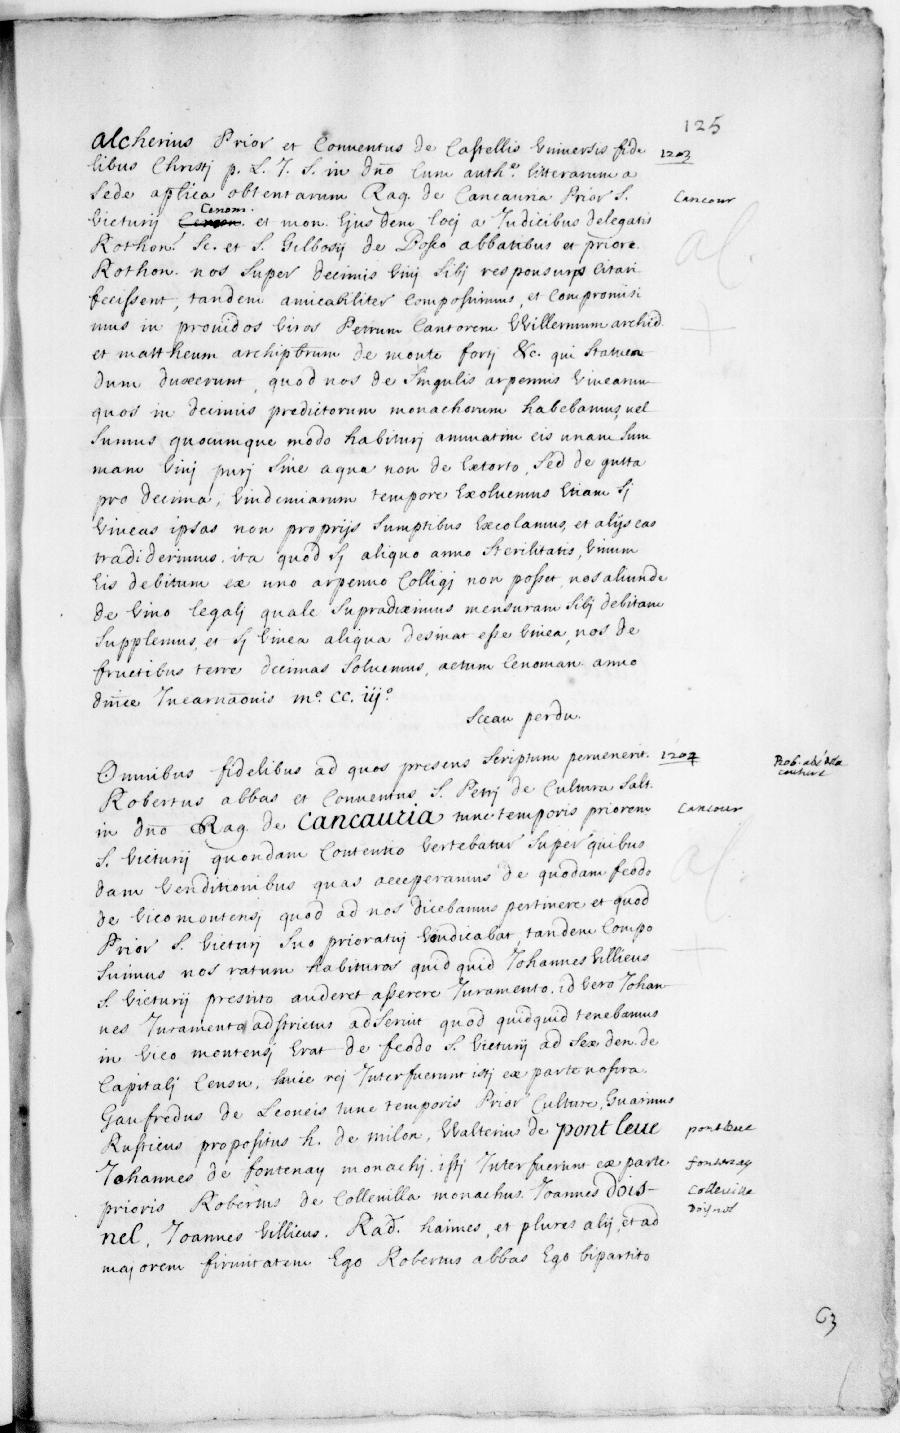 125
Alcherius Prior et Conventus de Castellis Universis fide
1203
libus Christj p. L. J. S. in dño Cum auth.e litterarum a
Sede aplica obtentarum Rag. de Cancauria Prior S.
Cancour
Victurij Cenom. et mon. Ejusdem locj a Judicibus delegatis
Rothon. Sc. et S. Gilbosij de Bosco abbatibus et priore
Rothon. nos super decimis Vinj sibj responsuros Citari
fecissent, tandem amicabiliter composuimus, et Compromisi
mus in providos Viros Petrum Cantorem Willermum archid.
et mattheum archipbrum de monte fortj &c. qui statuen
dum duxerunt, quod nos de Singulis arpennis Vinearum
quos in decimis predictorum monachorum habebamus, vel
sumus quocumque modo habiturj annuatim eis unam Sum
mam Vinj purj sine aqua non de Extorto, Sed de gutta
pro decima, Vindemiarum tempore Exolvemus Etiam Sj
Vineas ipsas non proprijs Sumptibus Excolamus, et alijs eas
tradiderimus. ita quod Sj aliquo anno Sterilitatis, Vinum
Eis debitum ex uno arpenno Colligj non posset, nos aliunde
de Vino legalj quale Supradiximus mensuram Sibj debitam
Supplemus, et Sj Vinea aliqua desinat esse Vinea, nos de
fructibus terre decimas Solvemus, actum Cenoman. anno
dnice Incarnaonis m.o CC. iij.o
Sceau perdu.
Omnibus fidelibus ad quos presens Scriptum pervenerit.
1204
Rob. abé de la
couture
Robertus abbas et Conventus S. Petrj de Cultura Salt.
in dño Rag. de Cancauria tunc temporis priorem
Cancour
S. Victurij quondam Contentio Vertebatur Super quibus
dam Venditionibus quas acceperamus de quodam feodo
de Vicomontensj quod ad nos dicebamus pertinere et quod
Prior S. Victurj Suo prioratuj Vindicabat, tandem Compo
suimus nos ratum habituros quidquid Johannes Villicus
S. Victurij prestito auderet asserere Juramento. id Vero Johan
nes Juramento adstrictus adseruit quod quidquid tenebamus
in Vico montensj Erat de feodo S. Victurij ad Sex den. de
Capitalj Censu, huic rej Interfuerunt istj ex parte nostra.
Gaufredus de Leoneis tunc temporis Prior Culture, Guarinus
Rusticus propositus h. de milon, Walterius de pont leue
pont leue
Johannes de fontenay monachj. istj Interfuerunt ex parte
fontenay
prioris Robertus de Collevilla monachus. Joannes Dois-
Colleville
Doisnel
nel, Joannes Villicus. Rad. haimes, et plures alij, et ad
majorem firmitatem Ego Robertus abbas Ego bipartito
63